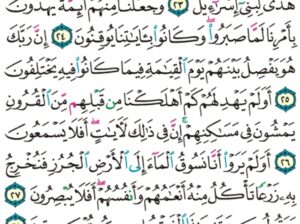 هُدًى لِّبَنِىٓ إِسْرَٰٓءِيلَ ٢٣ وَجَعَلْنَا مِنْهُمْ أَئِمَّةً يَهْدُونَ
بِأَمْرِنَا لَمَّا صَبَرُوا۟ ۖ وَكَانُوا۟ بِـَٔايَٰتِنَا يُوقِنُونَ ٢٤ إِنَّ رَبَّكَ
هُوَ يَفْصِلُ بَيْنَهُمْ يَوْمَ ٱلْقِيَٰمَةِ فِيمَا كَانُوا۟ فِيهِ يَخْتَلِفُونَ
٢٥ أَوَلَمْ يَهْدِ لَهُمْ كَمْ أَهْلَكْنَا مِن قَبْلِهِم مِّنَ ٱلْقُرُونِ
يَمْشُونَ فِى مَسَٰكِنِهِمْ ۚ إِنَّ فِى ذَٰلِكَ لَـَٔايَٰتٍ ۖ أَفَلَا يَسْمَعُونَ
٢٦ أَوَلَمْ يَرَوْا۟ أَنَّا نَسُوقُ ٱلْمَآءَ إِلَى ٱلْأَرْضِ ٱلْجُرُزِ فَنُخْرِجُ
بِهِۦ زَرْعًا تَأْكُلُ مِنْهُ أَنْعَٰمُهُمْ وَأَنفُسُهُمْ ۖ أَفَلَا يُبْصِرُونَ ٢٧